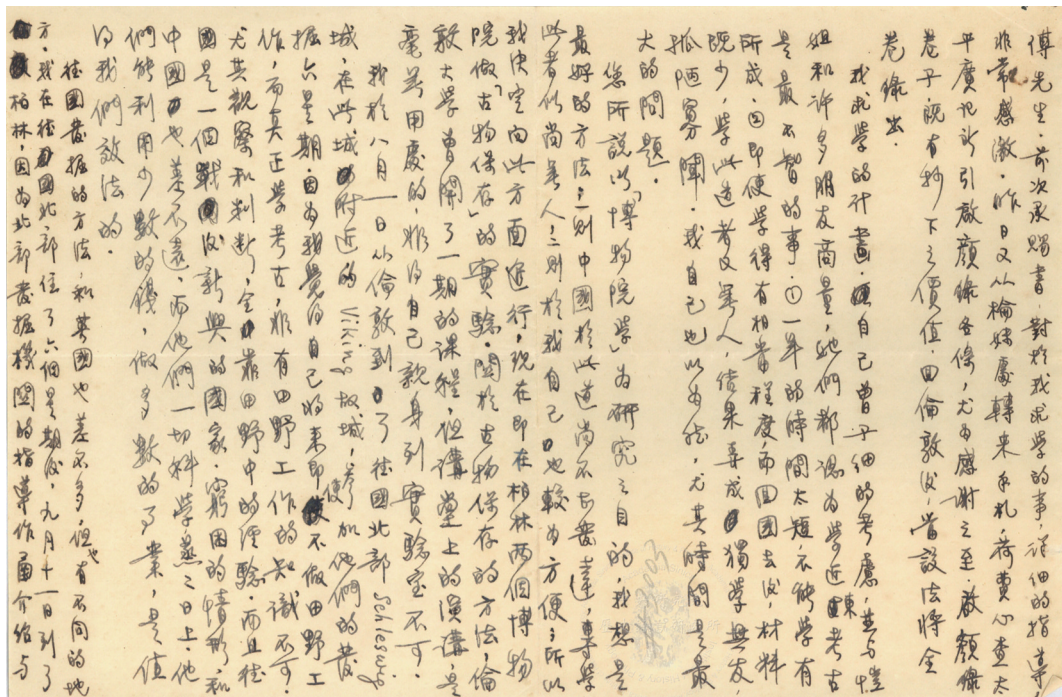 傅先生：前次承賜書，對於我求學的事，詳細的指導，
非常感激。昨日又從楷妹處轉來手札，荷費心查太
平廣記所引啟顏錄各條，尤為感謝之至。啟顏錄
卷子既有抄下之價值，回倫敦後，當設法將全
卷錄出。
我求學的計畫，自己曾子細的考慮，並與愷
姐和許多朋友商量，她們都認為學近東考古
是最不智的事。①一年的時間太短，不能學有
所成，②即使學得有相當程度而回國去後，材料
既少，學此道者又寡人，結果弄成獨學無友，
孤陋寡聞。我自己也以為然，尤其時間是最
大的問題。
您所說以「博物院學」為研究之目的，我想是
最好的方法：一則中國於此道尚不甚發達，專學
此者似尚無人，二則於我自己也較為方便；所以
我決定向此方面進行，現在即在柏林兩個博物
院做「古物保存」的實驗。關於古物保存的方法，倫
敦大學曾開了一期的課程，但講堂上的演講，是
毫無用處的，非得自己親身到實驗室不可。
我於八月一日從倫敦到了德國北部 Schleswig
城，在此城附近的 Viking 故城，參加他們的發
掘六星期。因為我覺得自己的來即使不做田野工
作，而真正學考古，非有田野工作的知識不可，
尤其觀察和判斷，全靠田野中的經驗。而且德
國是一個戰後新興的國家，窮困的情形，和
中國也差不遠，而他們一切科學蒸蒸日上，他
們能利用少數的錢，做多數的事業，是值
得我們效法的。
德國發掘的方法，和英國也差不多，但也有不同的地
方。我在德國北部住了六個星期後，九月十一日到了
柏林，因為北部發掘機關的指導作函介紹與